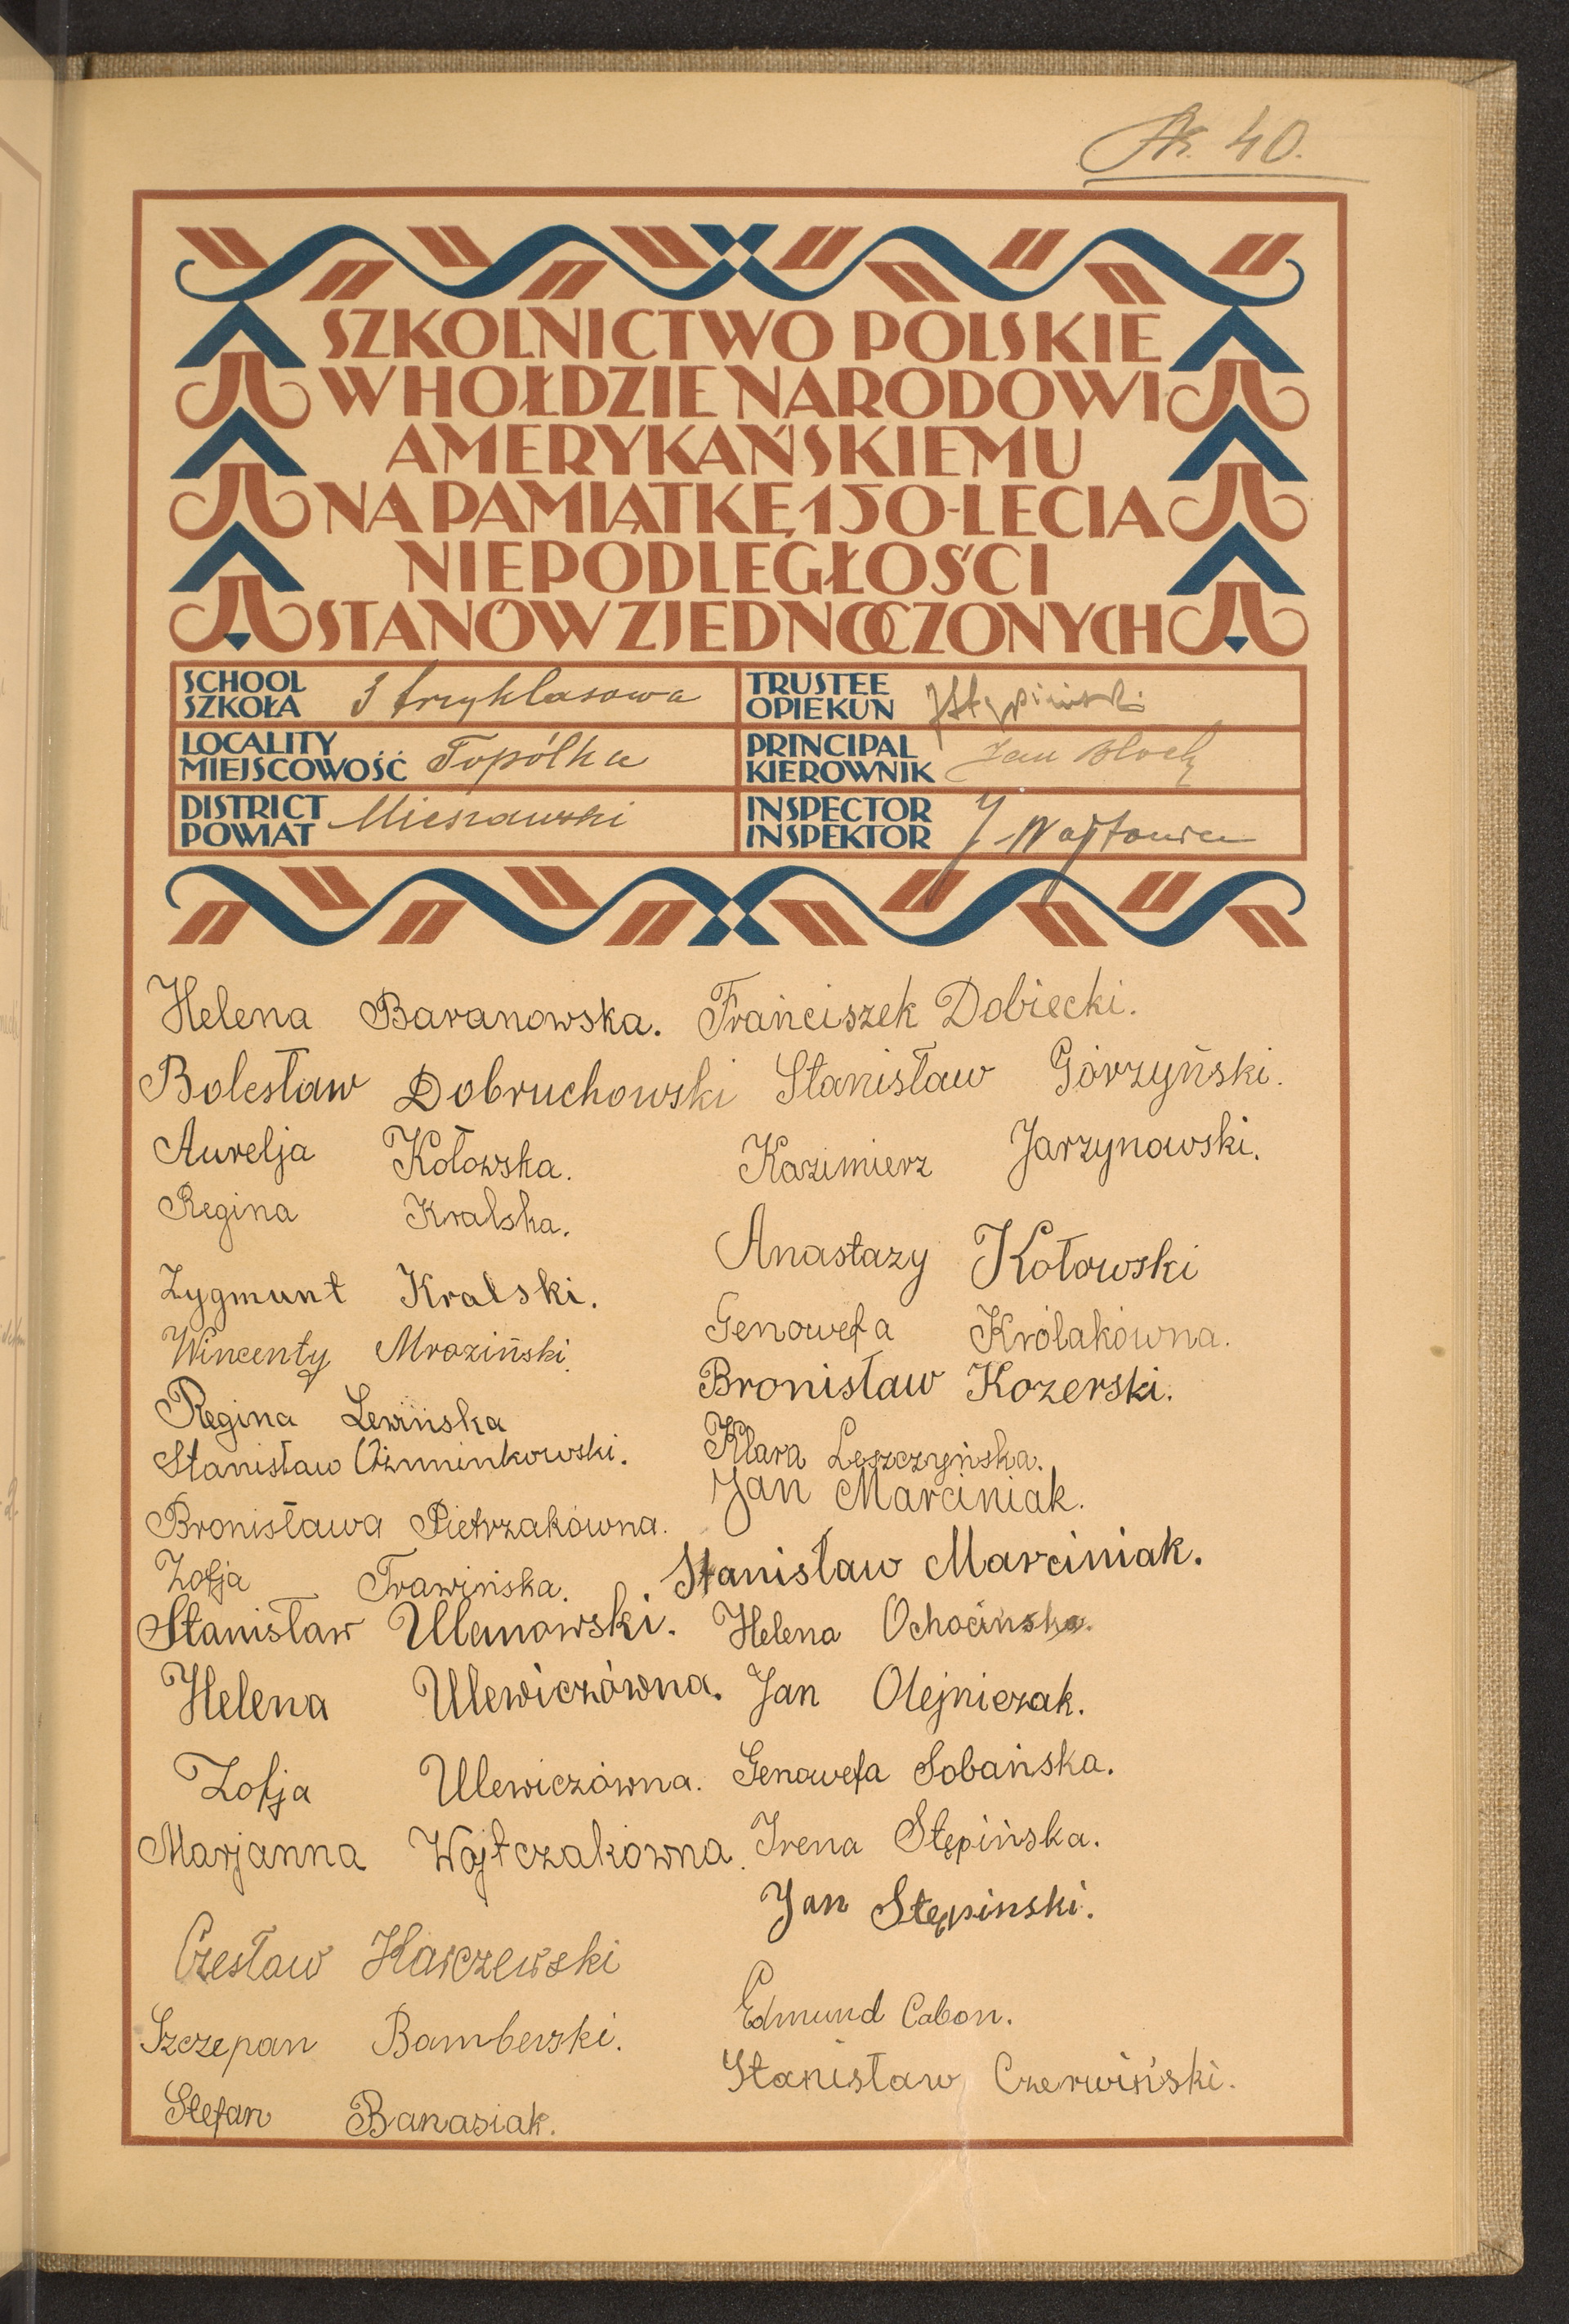 40.
SZKOLNICTWO POLSKIE
W HOŁDZIE NARODOWI
AMERYKAŃSKIEMU
NA PAMIĄTKĘ 150-LECIA
NIEPODLEGŁOŚCI
STANÓW ZJEDNOCZONYCH
SCHOOL
SZKOŁA
3 trzyklasowa
TRUSTEE
OPIEKUN
JStępiński
LOCALITY
MIEJSCOWOŚĆ
Topólka
PRINCIPAL
KIEROWNIK
Jan Bloch
DISTRICT
POWIAT
Nieszawski
INSPECTOR
INSPEKTOR
J. Wojtowicz
Helena Baranowska.
Franciszek Dobiecki.
Bolesław Dobruchowski
Stanisław Górzyński.
Aurelja Kołowska.
Kazimierz Jarzynowski.
Regina Kralska.
Anastazy Kołowski
Zygmunt Kralski.
Genowefa Królakówna.
Wincenty Mroziński.
Bronisław Kozerski.
Regina Lewińska
Klara Leszczyńska.
Stanisław Oźminkowski.
Jan Marciniak.
Bronisława Pietrzakówna.
Stanisław Marciniak.
Zofja Trawińska.
Stanisław Ulanowski.
Helena Ochocińska.
Helena Ulewiczówna.
Jan Olejniczak.
Zofja Ulewiczówna.
Genowefa Sobańska.
Marjanna Wojtczakówna.
Irena Stępińska.
Jan Stępinski.
Czesław Karczewski
Edmund Cabon.
Szczepan Bamberski.
Stanisław Czerwiński.
Stefan Banasiak.